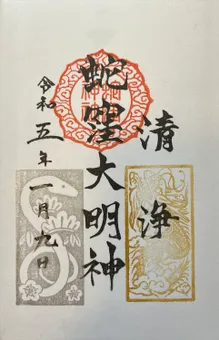 清浄
蛇窪大明神
令和五年一月九日